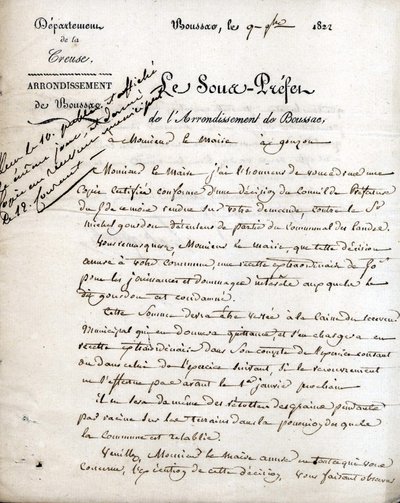 Département
de la
Creuse.
ARRONDISSEMENT
de Boussac.
Boussac, le 9 1822
Le Sous-Préfet
de l'Arrondissement de Boussac,
à Monsieur le Maire à gouzon
Reçu le 10. publié et affiché
le même jour, et donné
copie au receveur municipal
Le 12. courant
Monsieur le Maire j'ai l'honneur de vous adresser une
Copie certifiée conforme d'une décision du Conseil de Préfecture
du 9 de ce mois rendue sur votre demande, contre le Sr
michel gourdon détenteur de partie du Communal des landes
Vous remarquerez, Monsieur le maire, que cette décision
assure à votre Commune, une recette extraordinaire de
pour les jouissances et dommages intérêts auxquels le
dit gourdon est condamné.
Cette Somme devra être versée à la Caisse du receveur
Municipal qui en donnera quittance, et s'en chargera en
recette extraordinaire dans son compte de l'exercice courant
ou dans celui de l'exercice suivant, si le recouvrement
ne s'effectue pas avant le 1er janvier prochain
Il en sera de même des récoltes des grains pendants
par racine sur les terrains dans la possession desquels
la Commune est rétablie.
Veuillez, Monsieur le maire assurer en tout ce qui vous
Concerne, l'exécution de cette décision, vous faisant observer